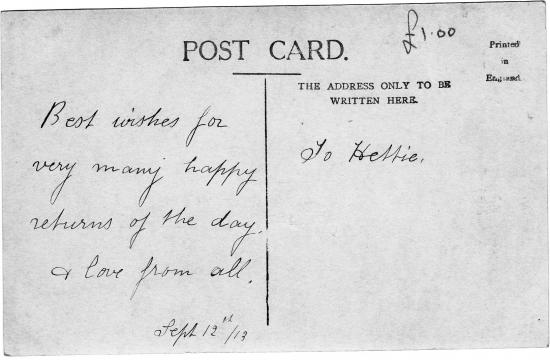 POST CARD.
1.00
Printed
in
England.
THE ADDRESS ONLY TO BE
WRITTEN HERE.
Best wishes for
very many happy
returns of the day.
& love from all.
Sept 12th/13
To Hettie.